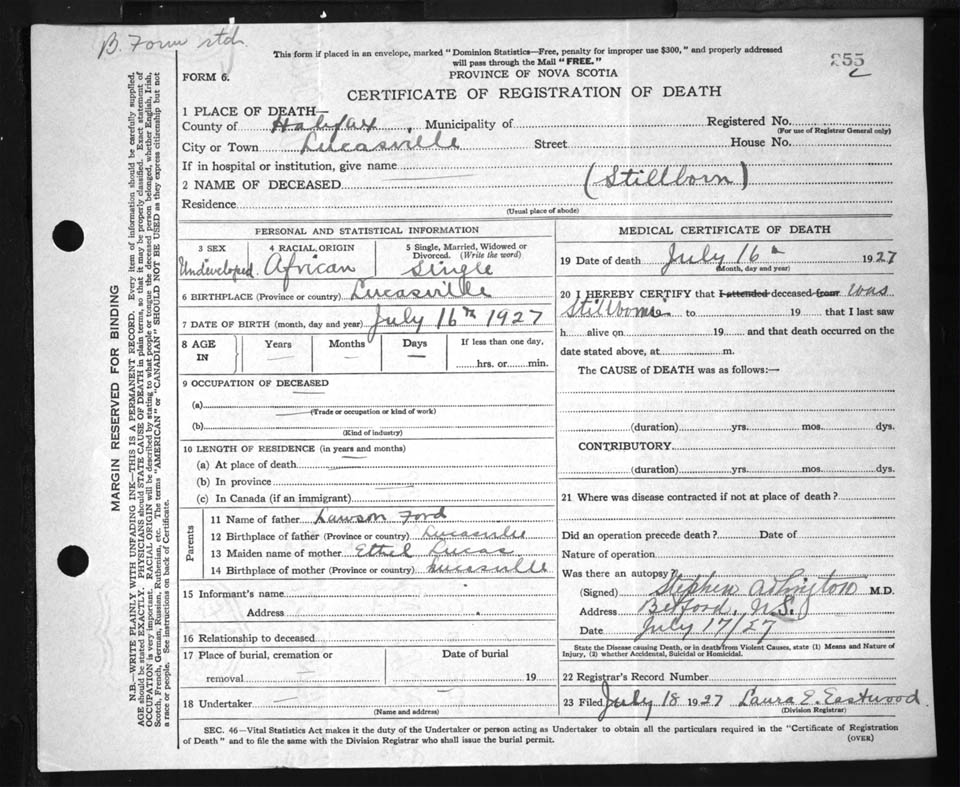 B. Form std.
This form if placed in an envelope, marked "Dominion Statistics—Free, penalty for improper use $300," and properly addressed
will pass through the Mail "FREE."
255
FORM 6.
PROVINCE OF NOVA SCOTIA
CERTIFICATE OF REGISTRATION OF DEATH
1 PLACE OF DEATH—
County of Halifax, Municipality of Registered No.
(For use of Registrar General only)
City or Town Lucasville Street House No.
If in hospital or institution, give name
2 NAME OF DECEASED (Stillborn)
Residence
(Usual place of abode)
PERSONAL AND STATISTICAL INFORMATION
3 SEX 4 RACIAL ORIGIN 5 Single, Married, Widowed or
Divorced. (Write the word)
Undeveloped. African Single
6 BIRTHPLACE (Province or country) Lucasville
7 DATE OF BIRTH (month, day and year) July 16th 1927
8 AGE IN Years Months Days If less than one day,
hrs. or min.
9 OCCUPATION OF DECEASED
(a)
(Trade or occupation or kind of work)
(b)
(Kind of industry)
10 LENGTH OF RESIDENCE (in years and months)
(a) At place of death
(b) In province
(c) In Canada (if an immigrant)
Parents
11 Name of father Lawson Ford
12 Birthplace of father (Province or country) Lucasville
13 Maiden name of mother Ethel Lucas
14 Birthplace of mother (Province or country) Lucasville
15 Informant's name
Address
16 Relationship to deceased
17 Place of burial, cremation or Date of burial
removal 19
18 Undertaker
(Name and address)
MEDICAL CERTIFICATE OF DEATH
19 Date of death July 16th 1927
(Month, day and year)
20 I HEREBY CERTIFY that I attended deceased from was
Stillborn to 19 that I last saw
h alive on 19 and that death occurred on the
date stated above, at m.
The CAUSE of DEATH was as follows:—
(duration) yrs. mos. dys.
CONTRIBUTORY.
(duration) yrs. mos. dys.
21 Where was disease contracted if not at place of death?
Did an operation precede death? Date of
Nature of operation
Was there an autopsy?
(Signed) Stephen M.D.
Address Bedford, N.S.
Date July 17/27
State the Disease causing Death, or in death from Violent Causes, state (1) Means and Nature of
Injury, (2) whether Accidental, Suicidal or Homicidal.
22 Registrar's Record Number
23 Filed July 18 1927 Laura E. Eastwood
(Division Registrar)
SEC. 46—Vital Statistics Act makes it the duty of the Undertaker or person acting as Undertaker to obtain all the particulars required in the "Certificate of Registration
of Death" and to file the same with the Division Registrar who shall issue the burial permit.
(OVER)
MARGIN RESERVED FOR BINDING
N.B.—WRITE PLAINLY WITH UNFADING INK—THIS IS A PERMANENT RECORD. Every item of information should be carefully supplied.
AGE should be stated EXACTLY. PHYSICIANS should STATE CAUSE OF DEATH in plain terms, so that it may be properly classified. Exact statement of
OCCUPATION is very important. RACIAL ORIGIN will be described by stating to what people or tongue the deceased person belonged, whether English, Irish,
Scotch, French, German, Russian, Ruthenian, etc. The terms "AMERICAN" or "CANADIAN" SHOULD NOT BE USED as they express citizenship but not
a race or people. See instructions on back of Certificate.